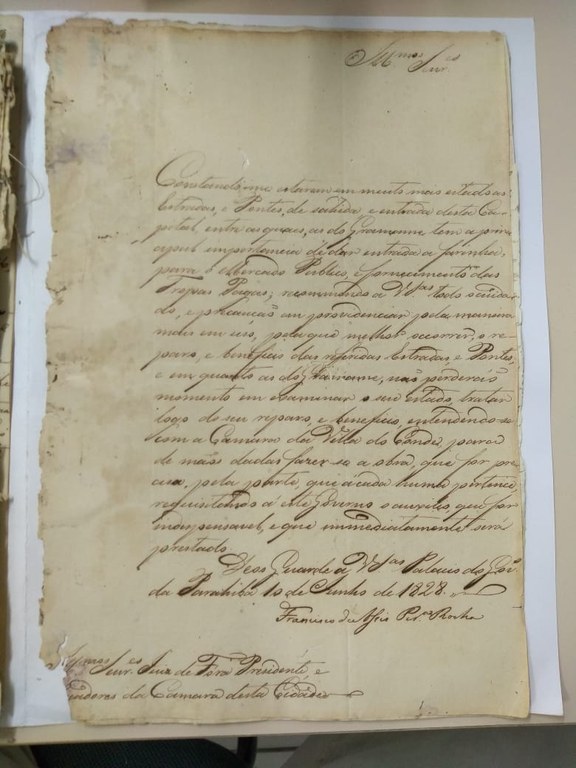 Illmos Senr.es
Constando-me estarem em muito mao estado as
Estradas, e Pontes, de sahida, e entrada desta Ca-
pital, entre as quaes, as do Gramame tem a prin-
cipal importancia de dar entrada a farinha,
para o Mercado Publico, e fornecimento das
Tropas Pagas; recommendo a VSas todo o cuida-
do, e precaução em providenciar pela maneira
mais em uso, pela que melhor occorrer, o re-
paro, e beneficio das referidas Estradas, e Pontes,
e em quanto as do Gramame, não perderão
momento em examinar o seu estado, tratar
logo do seu reparo, e beneficio, entendendo-se
com a Camara da Villa do Conde, para
de mãos dadas fazer-se a obra, que for pre-
cisa, pela parte, que a cada huma pertence
requisitando a este Governo o auxilio, que for
indispensavel, e que immediatamente será
prestado.
Deos Guarde a VSas Palacio do Gov.
da Parahiba 10 de Junho de 1828.
Francisco de Assis Per.ª Rocha
Senr.es Juiz de Fora Presidente, e
da Camara desta Cidade